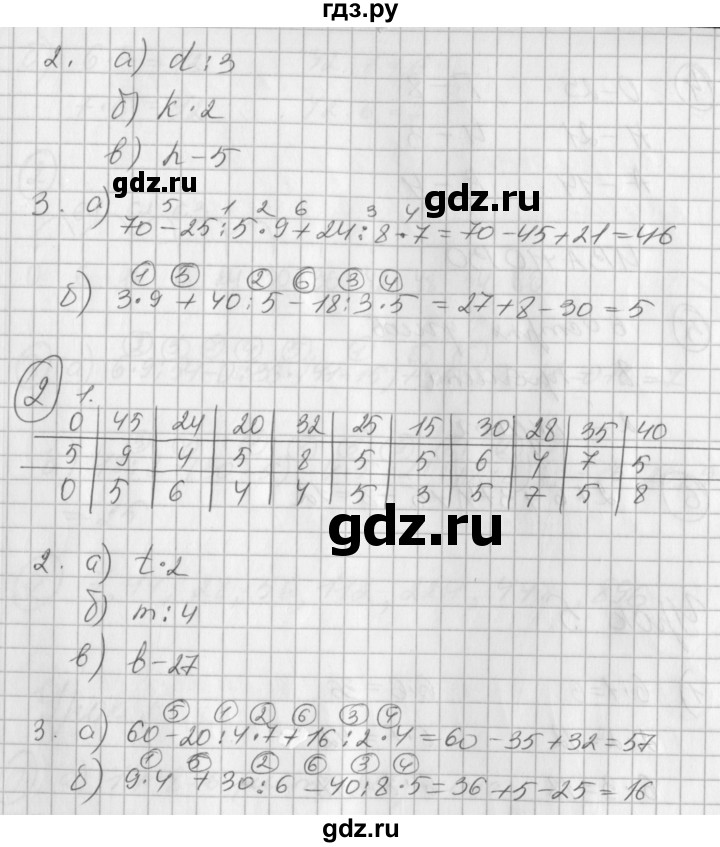 гдз.ру
2. а) d : 3
б) k · 2
в) n - 5
gdz.ru
gdz.ru
3. а) 70 - 25 : 5 · 9 + 24 : 8 · 7 = 70 - 45 + 21 = 46
5 1 2 6 3 4
① ⑤ ② ⑥ ③ ④
б) 3 · 9 + 40 : 5 - 18 : 3 · 5 = 27 + 8 - 30 = 5
② 1.
0 45 24 20 32 25 15 30 28 35 40
5 9 4 5 8 5 5 6 4 7 5
0 5 6 4 4 5 3 5 7 5 8
gdz.ru
2. а) t · 2
б) m : 4
в) b - 27
gdz.ru
gdz.ru
⑤ ① ② ⑥ ③ ④
3. а) 60 - 20 : 4 · 7 + 16 : 2 · 4 = 60 - 35 + 32 = 57
① ⑤ ② ⑥ ③ ④
б) 9 · 4 + 30 : 6 - 40 : 8 · 5 = 36 + 5 - 25 = 16
gdz.ru